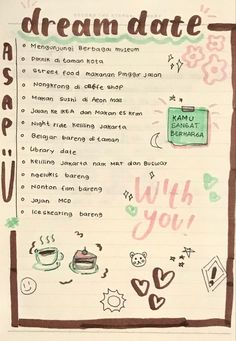 dream date
ASAP!!
Mengunjungi Berbagai museum
Piknik di taman kota
Street food makanan Pinggir jalan
Nongkrong di coffe shop
Makan Sushi di Aeon mall
Jalan ke IKEA dan Makan es krim
Night ride keliling Jakarta
Belajar bareng di taman
Library date
Keliling Jakarta naik MRT dan Busway
ngelukis bareng
Nonton film bareng
Jajan MCD
Ice skearing bareng
KAMU
SANGAT
BERHARGA
With
you!